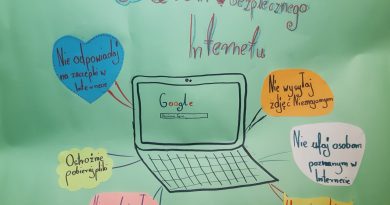 Bezpiecznego
Internetu
Nie odpowiadaj
na zaczepki w
Internecie
Google
Nie wysyłaj
zdjęć Nieznajomym
Ostrożnie
pobieraj pliki
Nie ufaj osobom
poznanym w
Internecie